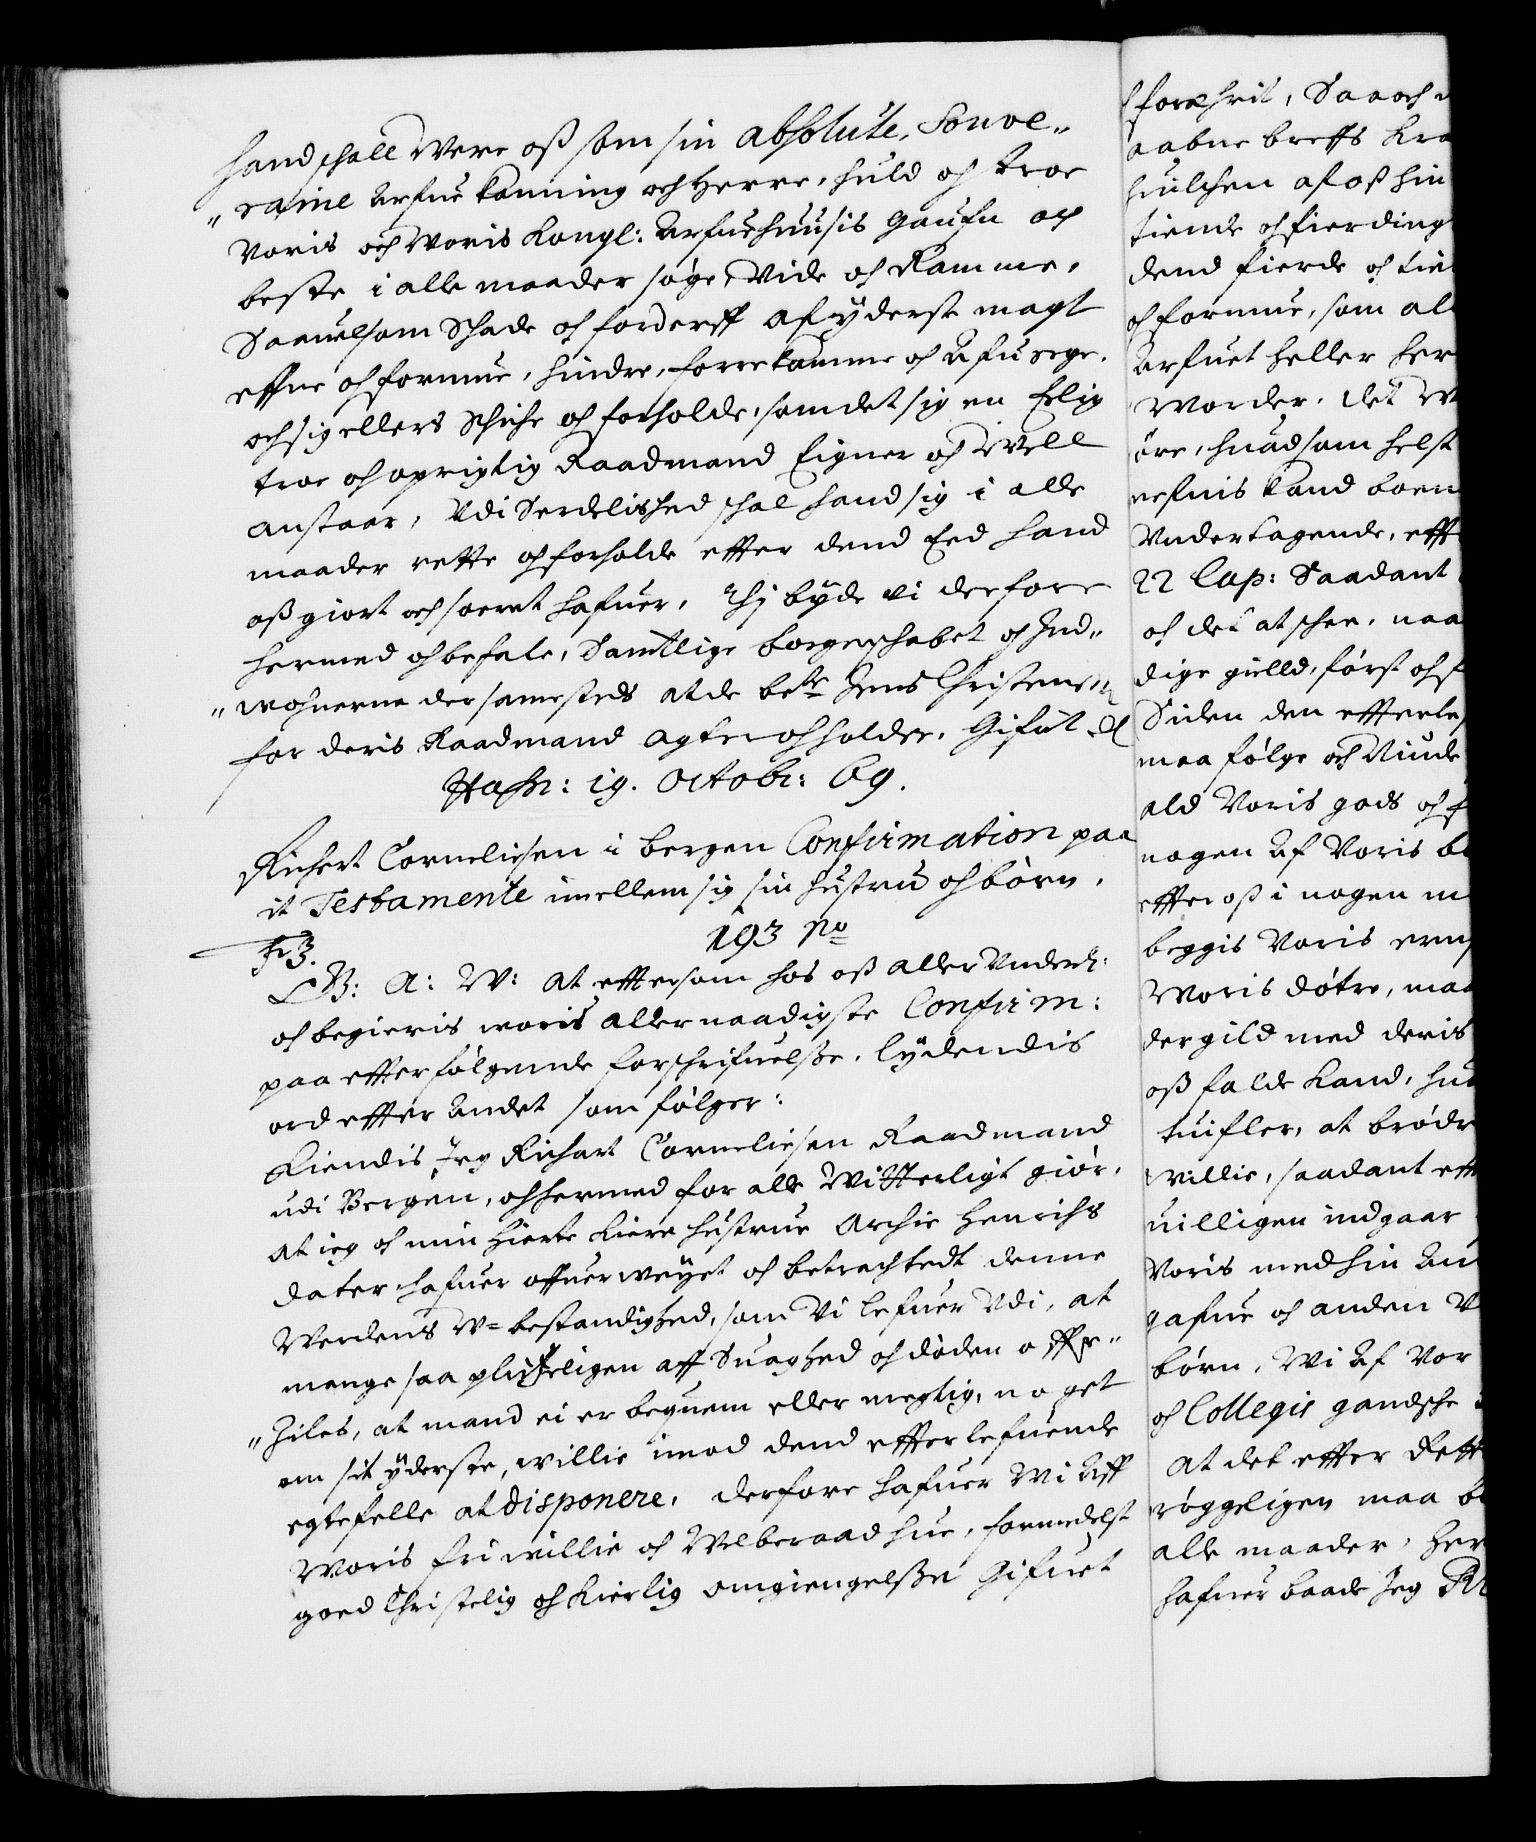 hand schall Were oß som sin absolute, Souve„
„raine Arfue Konning och Herre, huld och troe
Voris och Voris Kongl: Arfuehuusis gaufn och
beste i alle maader søge, Vide och Ramme,
Saauelsom Schade och forderff af yderste magt
effne och formue, hindre, forrekomme och Afuerge.
och sig ellers schiche och forholde, som det sig en Erlig
troe och oprigtig Raadmand Eigner och Well
anstaar, Udi Serdelished schal hand sig i alle
maader rette och forholde efter dend Eed hand
oß giort och soeret hafuer, Thj byde vi derfore
hermed och befale, Samtlige borgerschabet och Ind„
„wohnerne dersamesteds at de bete Jens Christensen
for deris Raadmand agter och holder. Gifuet
Hafn: 19. Octobr: 69.
Richert Corneliesen i bergen Confirmation paa
it Testamente imellem sig sin hustru och børn.
193 No
Fr 3.
G: A: W: At eftersom hos oß allerUnderd:
och begieris woris allernaadigste Confirm:
paa efterfølgende forschrifuelße, lydendis
ord efter Andet som følger:
Kiendis Jeg Richart Corneliesen Raadmand
udi Bergen, och hermed for alle Witterligt giør,
at ieg och min Hierte kiere hustrue Archie Henrichs
dater hafuer offuerweyet och betrachtedt denne
Werdens V=bestandighed, som Vi lefuer Udi, at
mange saa plutzeligen aff Suaghed och døden offr„
„Jiles, at mand ei er bequem eller megtig, noget
om sit yderste, willie imod dend efterlefuende
egtefelle at disponere, derfore hafuer Wi Aff
Woris fri willie och Welberaad hue, formedelst
goed Christelig och kierlig omgiengelßse Gifuet
forærhrit, Saa och
aabne breffs Kra
huilchen af oß hin
tiende och fierding
dend fierde och tie
och formue, som al
Arfuet heller her
Worder, det
øre, huad som helst
nefnis kand boen
Undertagende, eff
22 Cap: Saadant
och det at schee, naa
dige gielld, først och
Siden den efterle
maa følge och Niude
ald Voris gods och
nogen Af Voris b
efter oß i nogen m
beggis Voris
Woris døtre, maa
dergild med deris
oß falde kand, hu
tuifler, at brødr
willie, saadant eff
uilligen indgaar
Voris med sin
gafue och anden
børn, Wi Af Vor
och Collegie gandsche
At det efter Rett
røggeligen maa
alle maader, Her
hafuer baade Jeg